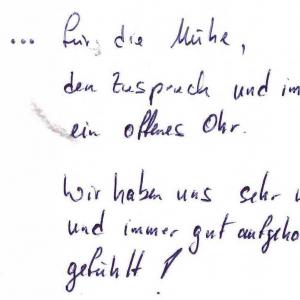 ... für die Mühe,
den Zuspruch und im
ein offenes Ohr.
Wir haben uns sehr w
und immer gut aufgeho
gefühlt!